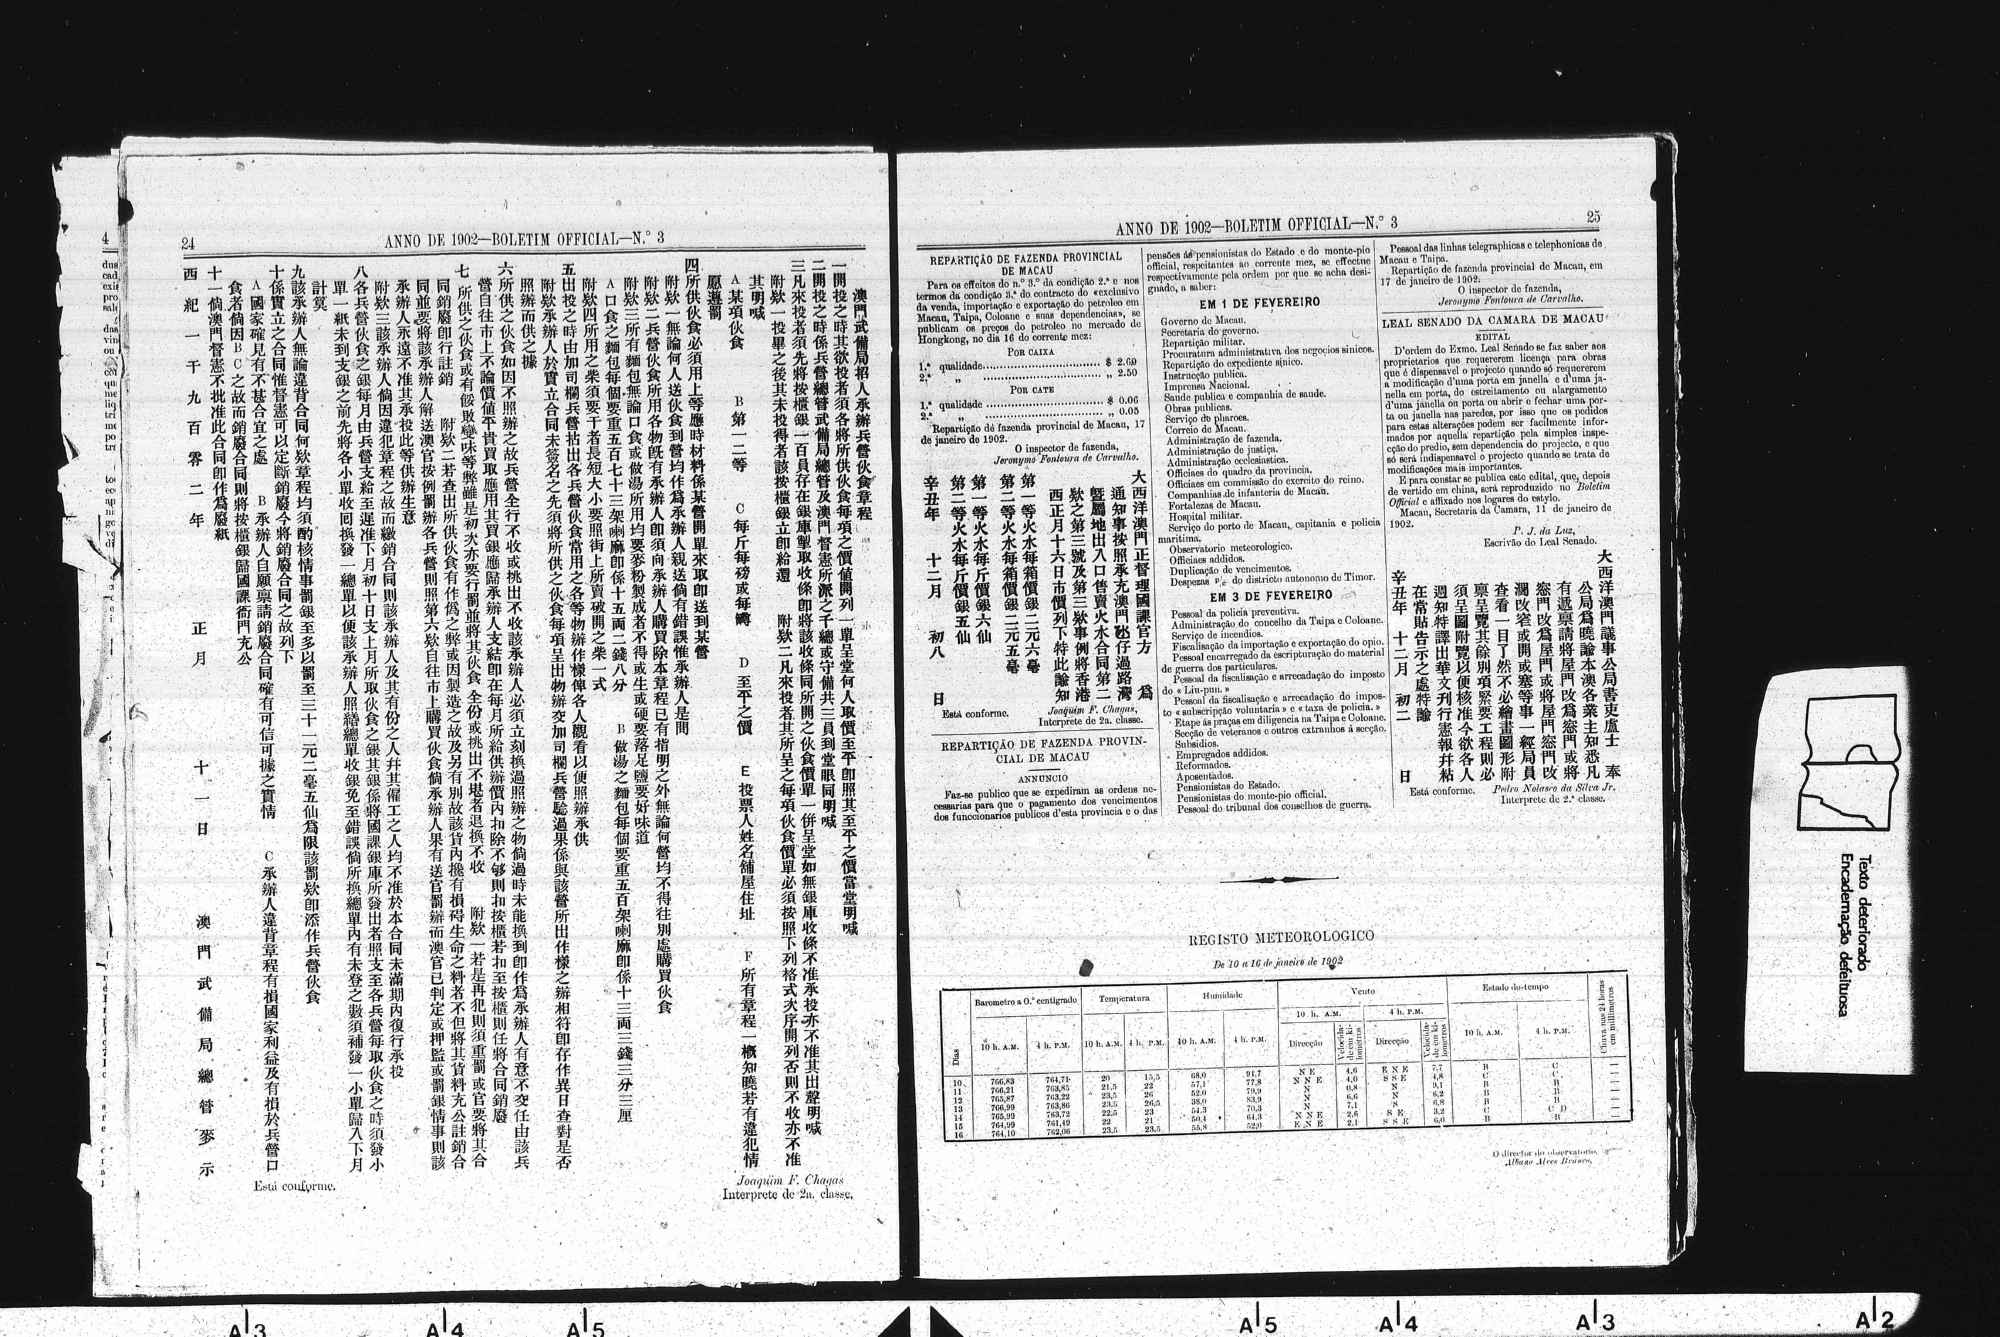 24
ANNO DE 1902—BOLETIM OFFICIAL—N.° 3
澳門武備局招人承辦兵營伙食章程
一開投之時其欲投者須各將所供伙食每項之價值開列一單呈堂何人取價至平卽照其至平之價當堂明喊
二開投之時係兵營總管武備局總管及澳門督憲所派之千總或守備共三員到堂眼同明喊
三凡來投者須先將按櫃銀一百員存在銀庫掣取收條卽將該收條同所開之伙食價單一併呈堂如無銀庫收條不准承投亦不准其出聲明喊
附欵一投畢之後其未投得者該按櫃銀立卽給還 附欵二凡來投者其所呈之每項伙食價單必須按照下列格式次序開列否則不收亦不准
其明喊
A 某項伙食 B 第一二等 C 每斤每磅或每罇 D 至平之價 E 投票人姓名舖屋住址 F 所有章程一概知曉若有違犯情
愿遵罰
四所供伙食必須用上等應時材料係某營開單來取卽送到某營
附欵一無論何人送伙食到營均作爲承辦人親送倘有錯誤惟承辦人是問
附欵二兵營伙食所用各物旣有承辦人卽須向承辦人購買除本章程已有指明之外無論何營均不得往別處購買伙食
附欵三所有麵包無論口食或做湯所用均要麥粉製成者不得或生或硬要落足鹽要好味道
A 口食之麵包每個要重五百七十三架喇麻卽係十五両二錢八分 B 做湯之麵包每個要重五百架喇麻卽係十三両三錢三分三厘
附欵四所用之柴須要干者長短大小要照街上所賣破開之柴一式
五出投之時由加司欄兵營拈出各兵營伙食當用之各等物辦作樣俾各人觀看以便照辦承供
附欵承辦人於實立合同未簽名之先須將所供之伙食每項呈出物辦交加司欄兵營驗過果係與該營所出作樣之辦相符卽存作異日查對是否
照辦而供之據
六所供之伙食如因不照辦之故兵營全行不收或挑出不收該承辦人必須立刻換過照辦之物倘過時未能換到卽作爲承辦人有意不交任由該兵
營自往市上不論價值平貴買取應用其買銀應歸承辦人支結卽在每月所給供辦價內扣除不够則扣按櫃若扣至按櫃則任將合同銷廢
七所供之伙食或有餿敗變味等弊雖是初次亦要行罰並將其伙食全份或挑出不堪者退換不收 附欵一若是再犯則須重罰或官要將其合
同銷廢卽行註銷 附欵二若查出所供伙食有作僞之弊或因製造之故及另有別故該貨內攙有損碍生命之料者不但將其貨料充公註銷合
同並要將該承辦人解送澳官按例罰辦各兵營則照第六欵自往市上購買伙食倘承辦人果有送官罰辦而澳官已判定或押監或罰銀情事則該
承辦人永遠不准其承投此等供辦生意
附欵三該承辦人倘因違犯章程之故而繳銷合同則該承辦人及其有份之人幷其僱工之人均不准於本合同未滿期內復行承投
八各兵營伙食之銀每月由兵營支給至遲准下月初十日支上月所取伙食之銀其銀係將國課銀庫所發出者照支至各兵營每取伙食之時須發小
單一紙未到支銀之前先將各小單收囘換發一總單以便該承辦人照繕總單收銀免至錯誤倘所換總單內有未登之數須補發一小單歸入下月
計算
九該承辦人無論違背合同何欵章程均須酌核情事罰銀至多以罰至三十一元二毫五仙爲限該罰欵卽添作兵營伙食
十係實立之合同惟督憲可以定斷銷廢今將銷廢合同之故列下
A 國家確見有不甚合宜之處 B 承辦人自願稟請銷廢合同確有可信可據之實情 C 承辦人違背章程有損國家利益及有損於兵營口
食者倘因B C之故而銷廢合同則將按櫃銀歸國課衙門充公
十一倘澳門督憲不批准此合同卽作爲廢紙
西紀一千九百零二年 正月 十一日 澳門武備局總管麥示
Joaquim F. Chagas
Interprete de 2a. classe.
Está conforme.
ANNO DE 1902—BOLETIM OFFICIAL—N.° 3
25
REPARTIÇÃO DE FAZENDA PROVINCIAL
DE MACAU
Para os effeitos do n.° 3.° da condição 2.ª e nos
termos da condição 3.ª do contracto do «exclusivo
da venda, importação e exportação do petroleo em
Macau, Taipa, Coloane e suas dependencias», se
publicam os preços do petroleo no mercado de
Hongkong, no dia 16 do corrente mez:
POR CAIXA
1.ª qualidade.............................. $ 2.60
2.ª „ .............................. „ 2.50
POR CATE
1.ª qualidade .............................. $ 0.06
2.ª „ .............................. „ 0.05
Repartição de fazenda provincial de Macau, 17
de janeiro de 1902.
O inspector de fazenda,
Jeronymo Fontoura de Carvalho.
大西洋澳門正督理國課官方 爲
通知事按照承充澳門氹仔過路灣
曁屬地出入口售賣火水合同第二
欵之第三號及第三欵事例將香港
西正月十六日市價列下特此諭知
第一等火水每箱價銀二元六毫
第二等火水每箱價銀二元五毫
第一等火水每斤價銀六仙
第二等火水每斤價銀五仙
辛丑年 十二月 初八 日
Está conforme.
Joaquim F. Chagas,
Interprete de 2a. classe.
REPARTIÇÃO DE FAZENDA PROVIN-
CIAL DE MACAU
ANNUNCIO
Faz-se publico que se expediram as ordens ne-
cessarias para que o pagamento dos vencimentos
dos funccionarios publicos d'esta provincia e o das
pensões ás pensionistas do Estado e do monte-pio
official, respeitantes ao corrente mez, se effectue
respectivamente pela ordem por que se acha desi-
gnado, a saber:
EM 1 DE FEVEREIRO
Governo de Macau.
Secretaria do governo.
Repartição militar.
Procuratura administrativa dos negocios sinicos.
Repartição do expediente sinico.
Instrucção publica.
Imprensa Nacional.
Saude publica e companhia de saude.
Obras publicas.
Serviço de pharoes.
Correio de Macau.
Administração de fazenda.
Administração de justiça.
Administração ecclesiastica.
Officiaes do quadro da provincia.
Officiaes em commissão do exercito do reino.
Companhias de infanteria de Macau.
Fortalezas de Macau.
Hospital militar.
Serviço do porto de Macau, capitania e policia
maritima.
Observatorio meteorologico.
Officiaes addidos.
Duplicação de vencimentos.
Despezas do districto autonomo de Timor.
EM 3 DE FEVEREIRO
Pessoal da policia preventiva.
Administração do concelho da Taipa e Coloane.
Serviço de incendios.
Fiscalisação da importação e exportação do opio.
Pessoal encarregado da escripturação do material
de guerra dos particulares.
Pessoal da fiscalisação e arrecadação do imposto
do « Liu-pun. »
Pessoal da fiscalisação e arrecadação do impos-
to « subscripção voluntaria » e « taxa de policia. »
Etape ás praças em diligencia na Taipa e Coloane.
Secção de veteranos e outros extranhos á secção.
Subsidios.
Empregados addidos.
Reformados.
Aposentados.
Pensionistas do Estado.
Pensionistas do monte-pio official.
Pessoal do tribunal dos conselhos de guerra.
Pessoal das linhas telegraphicas e telephonicas de
Macau e Taipa.
Repartição de fazenda provincial de Macau, em
17 de janeiro de 1902.
O inspector de fazenda,
Jeronymo Fontoura de Carvalho.
LEAL SENADO DA CAMARA DE MACAU
EDITAL
D'ordem do Exmo. Leal Senado se faz saber aos
proprietarios que requererem licença para obras
que é dispensavel o projecto quando só requererem
a modificação d'uma porta em janella e d'uma ja-
nella em porta, do estreitamento ou alargamento
d'uma janella ou porta ou abrir e fechar uma por-
ta ou janella nas paredes, por isso que os pedidos
para estas alterações podem ser facilmente infor-
mados por aquella repartição pela simples inspe-
cção do predio, sem dependencia do projecto, e que
só será indispensavel o projecto quando se trata de
modificações mais importantes.
E para constar se publica este edital, que, depois
de vertido em china, será reproduzido no Boletim
Official e affixado nos logares do estylo.
Macau, Secretaria da Camara, 11 de janeiro de
1902.
P. J. da Luz,
Escrivão do Leal Senado.
大西洋澳門議事公局書吏盧士 奉
公局爲曉諭本澳各業主知悉凡
有遞稟請將屋門改爲窓門或將
窓門改爲屋門或將屋門窓門改
濶改窄或開或塞等事一經局員
查看一目了然不必繪畫圖形附
稟呈覽其餘別項緊要工程則必
須呈圖附覽以便核准今欲各人
週知特譯出華文刊行憲報幷粘
在常貼告示之處特諭
辛丑年 十二月 初二 日
Está conforme.
Pedro Nolasco da Silva Jr.
Interprete de 2.ª classe.
REGISTO METEOROLOGICO
De 10 a 16 de janeiro de 1902
Dias | Barometro a O.° centigrado | Temperatura | Humidade | Vento | Estado do tempo | Chuva nas 24 horas em millimetros
10 h. A.M. 4 h. P.M.
10 h. A.M. 4 h. P.M. 10 h. A.M. 4 h. P.M. 10 h. A.M. 4 h. P.M. Direcção Velocidade em kilometros Direcção Velocidade em kilometros 10 h. A.M. 4 h. P.M.
10 766,83 764,71 20 15,5 68,0 91,7 N E 4,6 E N E 7,7 B C —
11 766,21 763,85 21,5 22 57,1 77,8 N N E 4,0 S S E 4,8 C C —
12 765,87 763,22 23,5 26 52,0 79,9 N 0,8 N 9,1 B B —
13 766,99 763,86 23,5 26,5 38,0 83,9 N 6,6 N 6,2 B B —
14 765,99 763,72 22,5 23 54,3 70,3 N 7,1 S 6,8 B B —
15 764,99 761,49 22 21 50,4 64,3 N N E 2,6 S E 3,2 C C D —
16 764,10 762,06 23,5 23,5 55,8 52,0 E N E 2,1 S S E 6,0 B B —
O director do observatorio,
Albano Alves Branco.
Texto deteriorado
Encadernação defeituosa
A3
A4
A5
A5
A4
A3
A2